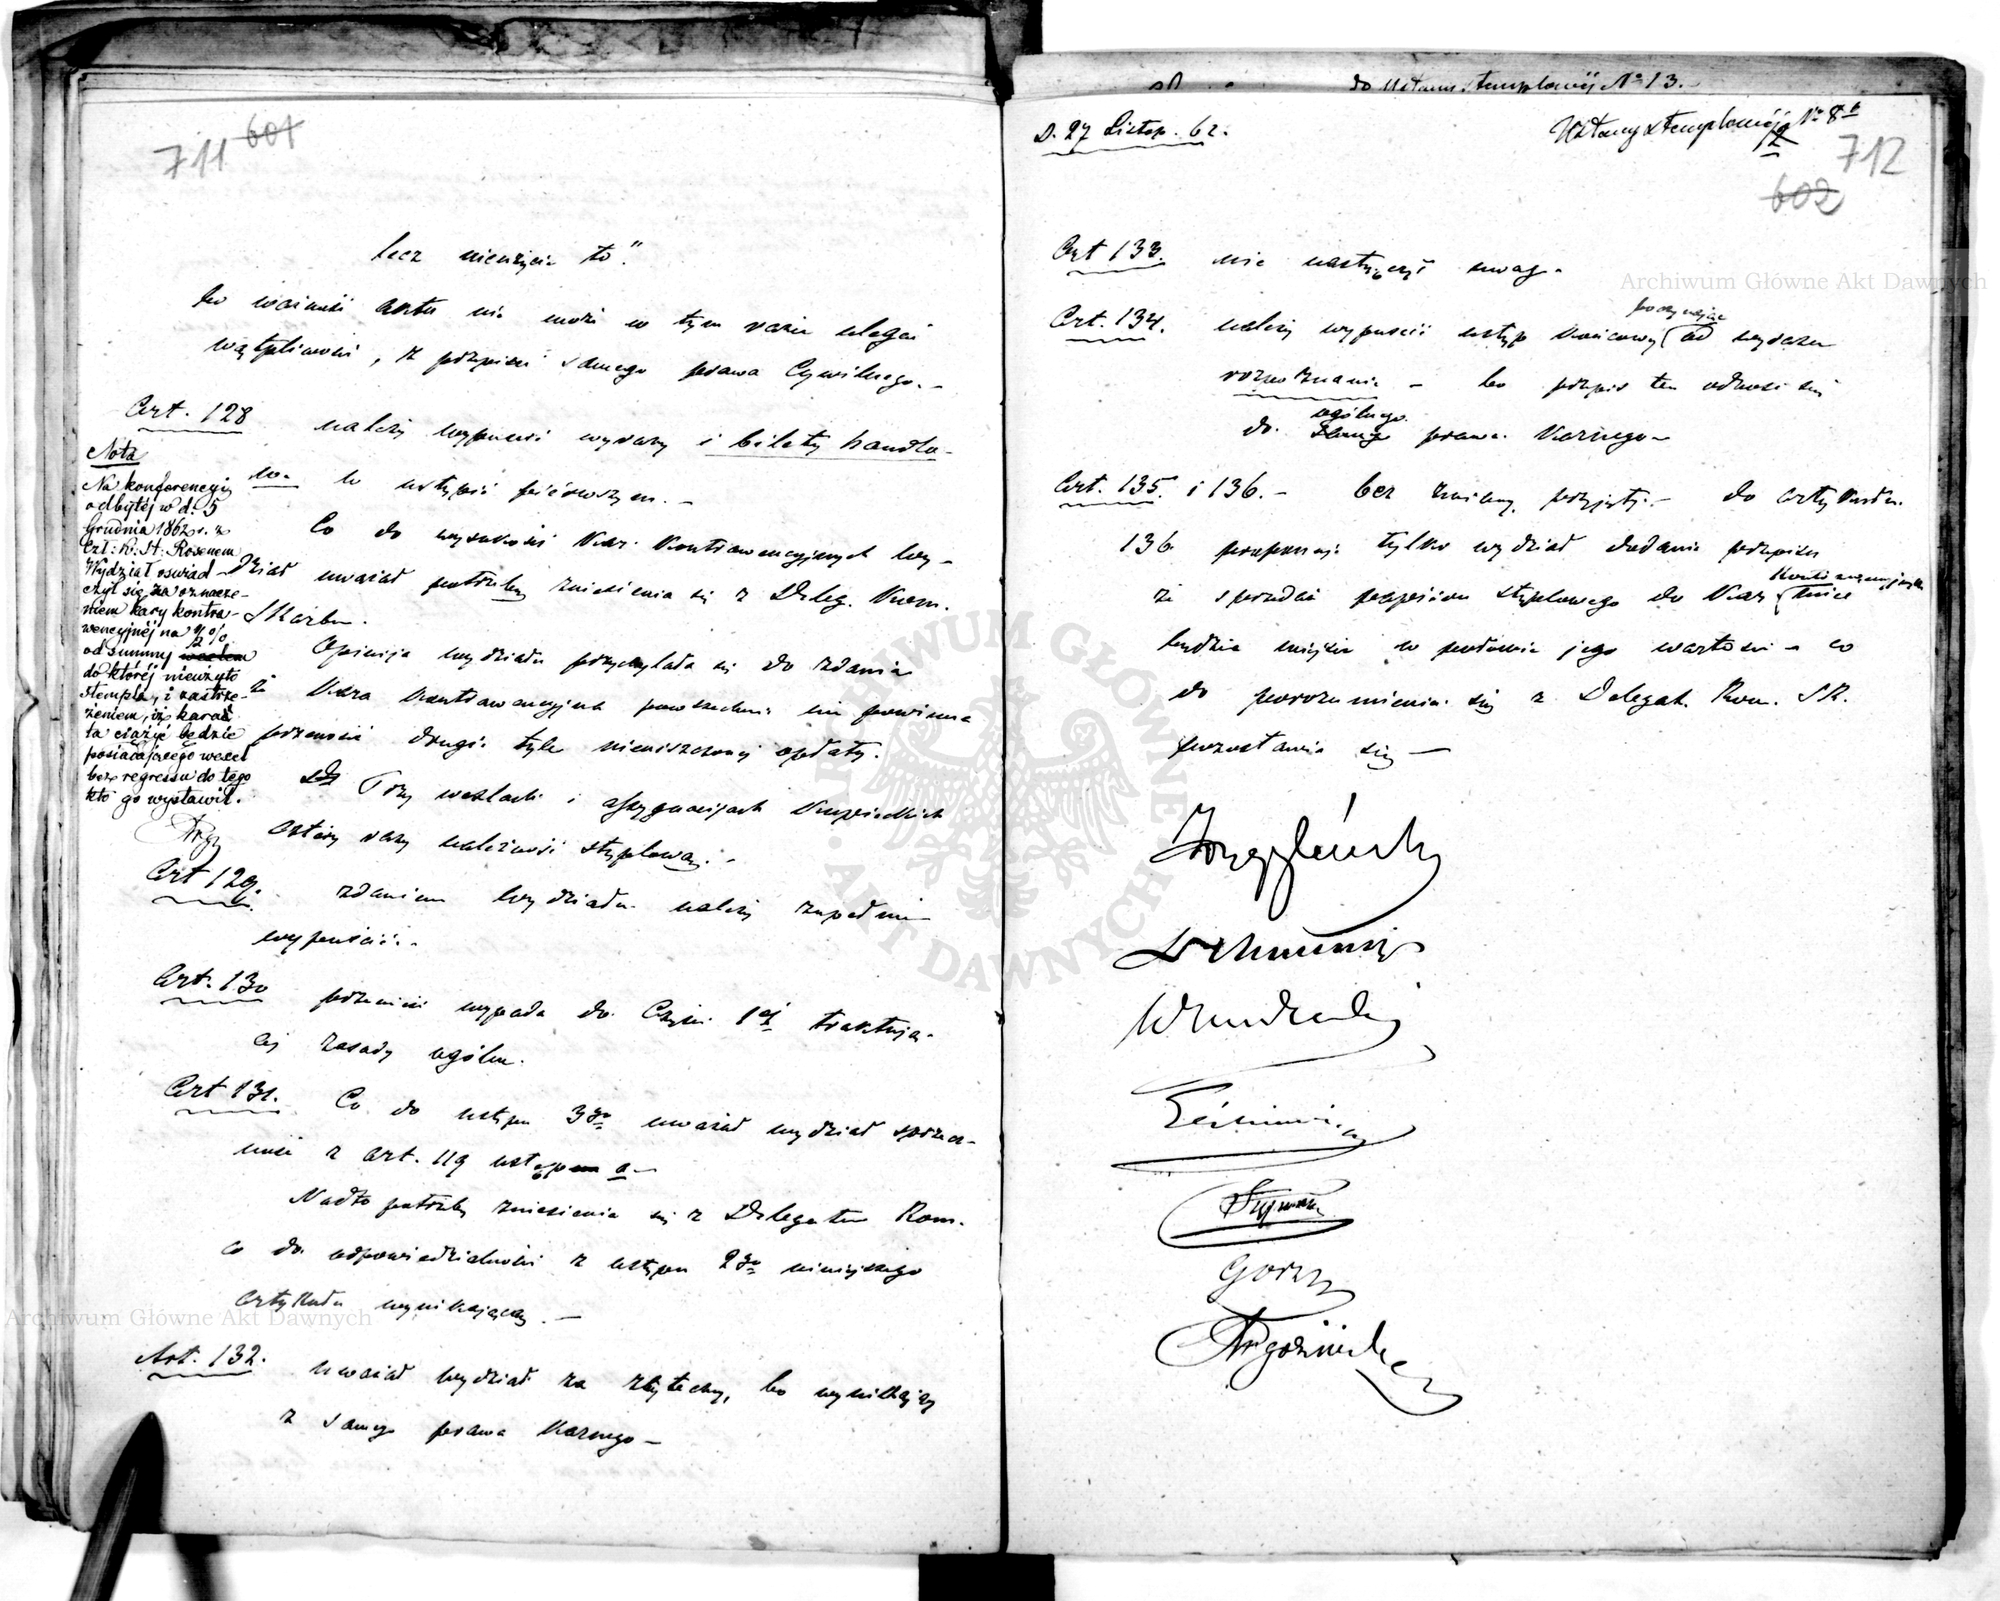 711 601
lecz nieużycie to".
bo ważność aktu nie może w tym razie ulegać
wątpliwości, z przepisu samego prawa Cywilnego.-
Art. 128 należy wypuścić wyrazy i bilety handlo-
we w ustępie pierwszym.-
Co do wysokości kar kontrawencyjnych Wy-
dział uważał potrzebę zniesienia się z Deleg. Kom.
Skarbu.
Opinija wydziału przychylała się do zdania
że kara kontrawencyjna powszechnie nie powinna
przenosić drugie tyle nieuiszczonej opłaty.
Przy wexlach i assygnacyjach kupieckich
cztery razy należność stęplową.-
Nota
Na konferencyi
odbytej w d. 5
Grudnia 1862 r. z
Czł: R: St: Rosenem
Wydział oświad-
czył się za oznacze-
niem kary kontra-
wencyjnéj na %
od summy
do któréj nieużyto
stempla, i zastrze-
żeniem, iż kara
ta ciążyć będzie
posiadającego wexel
bez regressu do tego
kto go wystawił.
Art 129. zdaniem Wydziału należy zupełnie
wypuścić.-
Art. 130 przenieść wypada do Części 1éj traktują-
cej zasady ogólne.
Art 131. Co do ustępu 3go uważał wydział sprzecz-
ność z art. 119 ustępem a-
Nadto potrzebę zniesienia się z Delegatem Kom.
co do odpowiedzialności z ustępu 2go niniejszego
artykułu wynikającej.-
Art. 132. uważał wydział za zbyteczny, bo wynikający
z samego prawa karnego-
do Ustawy stemplowéj No 13.
D. 27 Listop. 62.
Ustawy stemplowéj No 8
712
602
Art 133. nie nastręczył uwag.
Art. 134. należy wypuścić ustęp końcowy poczynając od wyrazu
rozpoznanie - bo przepis ten odnosi się
do ogólnego prawa karnego-
Art. 135. i 136.- bez zmiany przyjęty.- do artykułu
136 proponuje tylko wydział dodanie przepisu
że sprzedaż papieru stęplowego do kar kontrawencyjnych
będzie miejsce w połowie jego wartości - co
do porozumienia się z Delegat. Kom. SK.
pozostawia się —